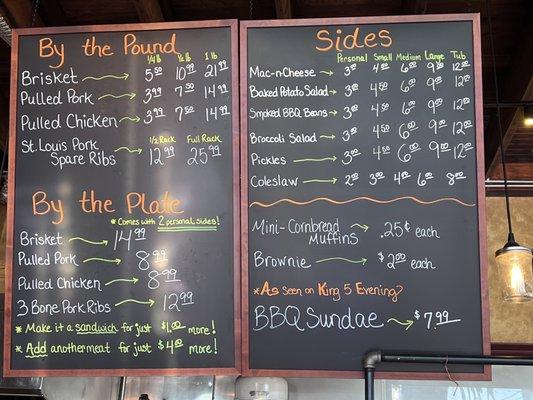 By the Pound
1/4 lb 1/2 lb 1 lb
Brisket → 5.50 10.99 21.99
Pulled Pork → 3.99 7.50 14.99
Pulled Chicken → 3.99 7.50 14.99
1/2 Rack Full Rack
St. Louis Pork
Spare Ribs → 12.99 25.99
By the Plate
*Comes with 2 personal sides!
Brisket → 14.99
Pulled Pork → 8.99
Pulled Chicken → 8.99
3 Bone Pork Ribs → 12.99
* Make it a sandwich for just $1.00 more!
* Add another meat for just $4.00 more!
Sides
Personal Small Medium Large Tub
Mac-n-Cheese → 3.00 4.50 6.00 9.00 12.00
Baked Potato Salad → 3.00 4.50 6.00 9.00 12.00
Smoked BBQ Beans → 3.00 4.50 6.00 9.00 12.00
Broccoli Salad → 3.00 4.50 6.00 9.00 12.00
Pickles → 3.00 4.50 6.00 9.00 12.00
Coleslaw → 2.00 3.00 4.00 6.00 8.00
Mini-Cornbread
Muffins → .25¢ each
Brownie → $2.00 each
*As seen on King 5 Evening?
BBQ Sundae → $7.99